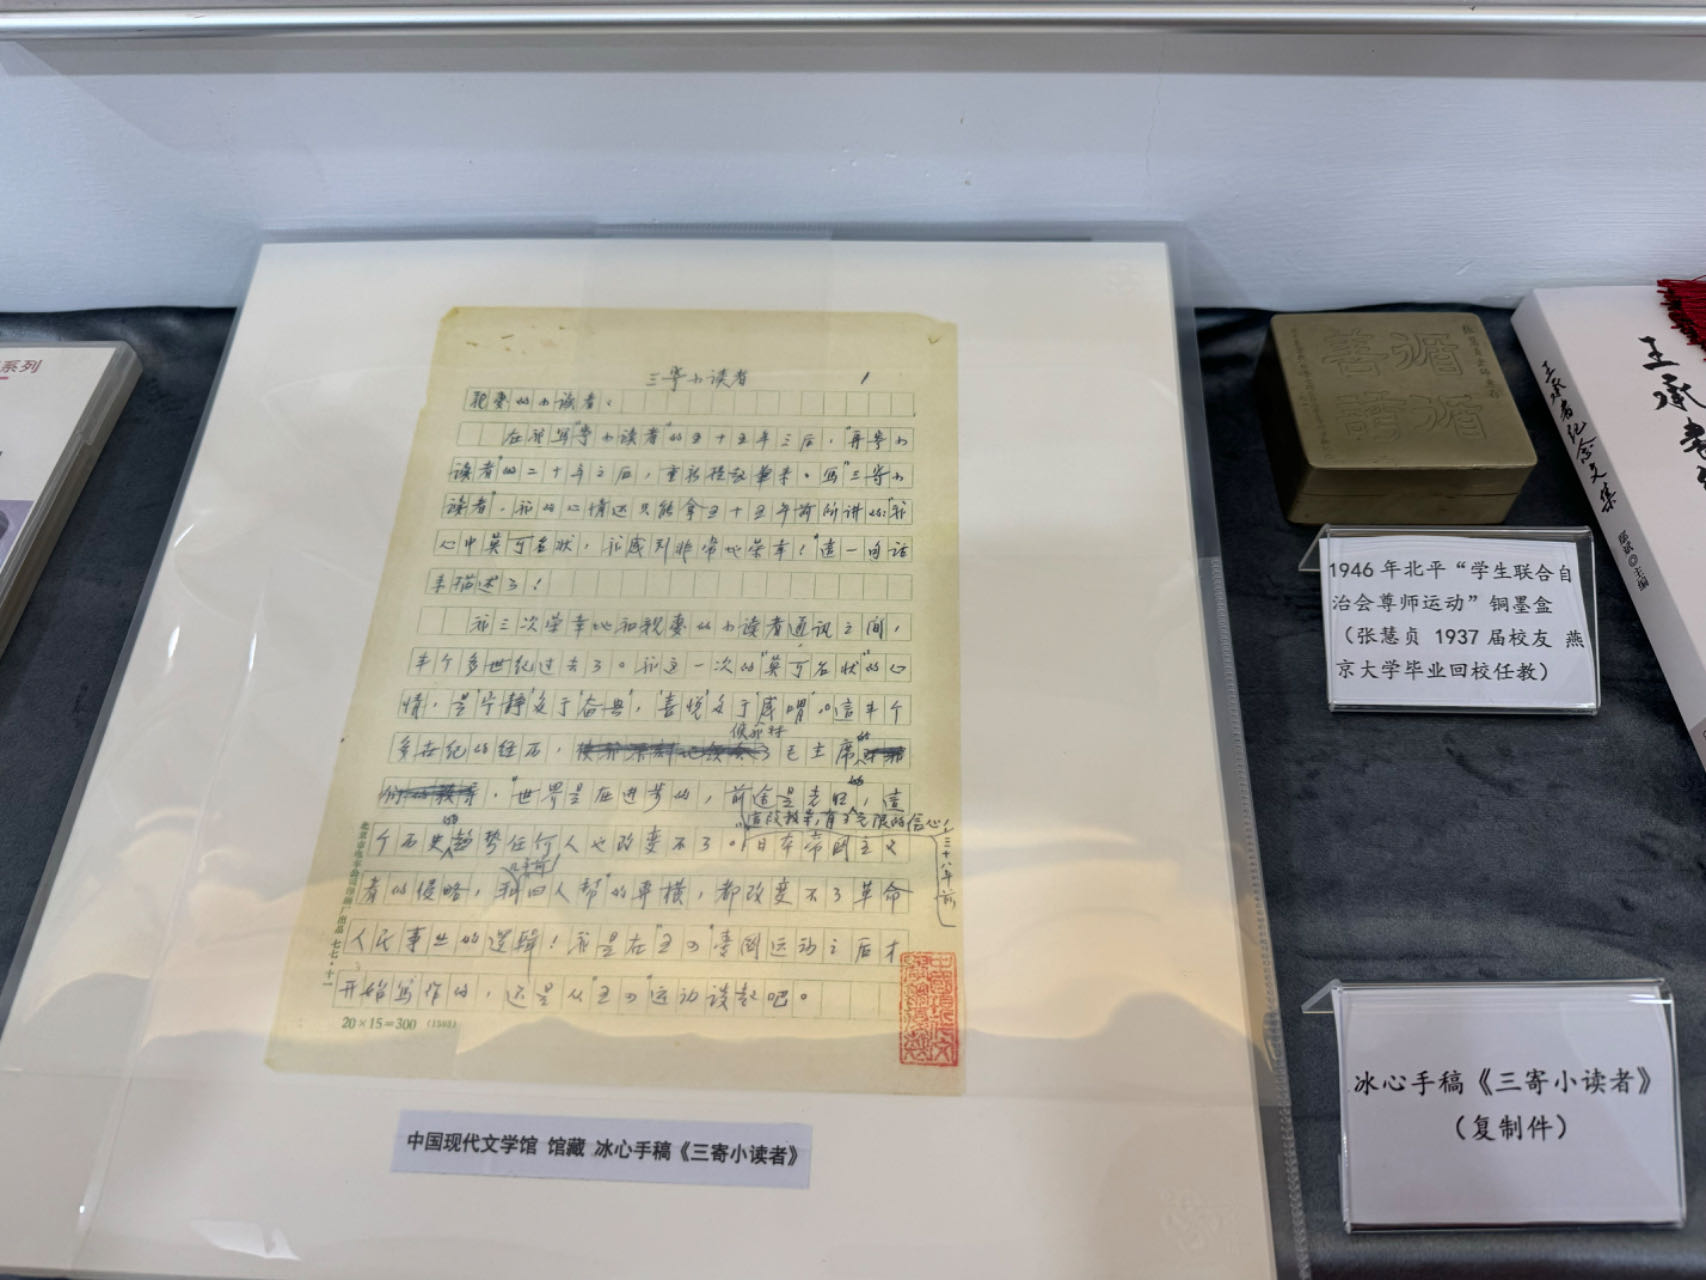 系列
三寄小读者 1
亲爱的小读者:
在我写“寄小读者”的五十五年之后,“再寄小
读者”的二十年之后,重新提起笔来,写“三寄小
读者”,我的心情还只能拿五十五年前所讲的:“我
心中莫可名状,我感到非常的荣幸!”这一句话
来描述了!
我三次荣幸地和亲爱的小读者通讯之间,
半个多世纪过去了。我这一次的“莫可名状”的心
情,是“宁静”多于“奋兴”,“喜悦”多于“感喟”。这半个
使我对
多世纪的经历,毛主席的
,“世界是在进步的,前途是光明的,这
这段教导,有了无限的信心!
个历史的趋势任何人也改变不了。”日本帝国主义
三十八年前
者的侵略,和四人帮”的专横,都改变不了革命
人民事业的逻辑!我是在“五四”爱国运动之后才
开始写作的,还是从“五四”运动谈起吧。
20×15=300 (1593)
北京市电车公司印刷厂出品 七七·十一
中国现代文学馆 馆藏 冰心手稿《三寄小读者》
循循
善诱
1946 年北平“学生联合自
治会尊师运动”铜墨盒
(张慧贞 1937 届校友 燕
京大学毕业回校任教)
王承书纪念文集
邵斌◎主编
王承书
冰心手稿《三寄小读者》
(复制件)